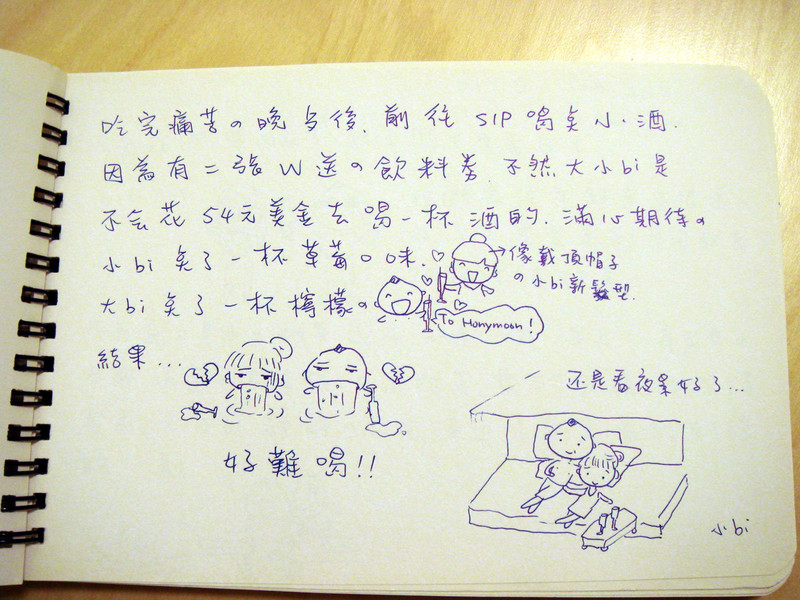 吃完痛苦の晚夕後, 前往 SIP 喝矣小酒.
因為有二張 W 送の飲料券, 不然大小bi是
不会花 54元美金去喝一杯酒的. 滿心期待の
小bi 矣了一杯草莓口味.
→像戴頂帽子
の小bi新髮型.
大bi 矣了一杯檸檬の
To Honymoon!
結果...
好難喝!!
还是看夜景好了...
小bi